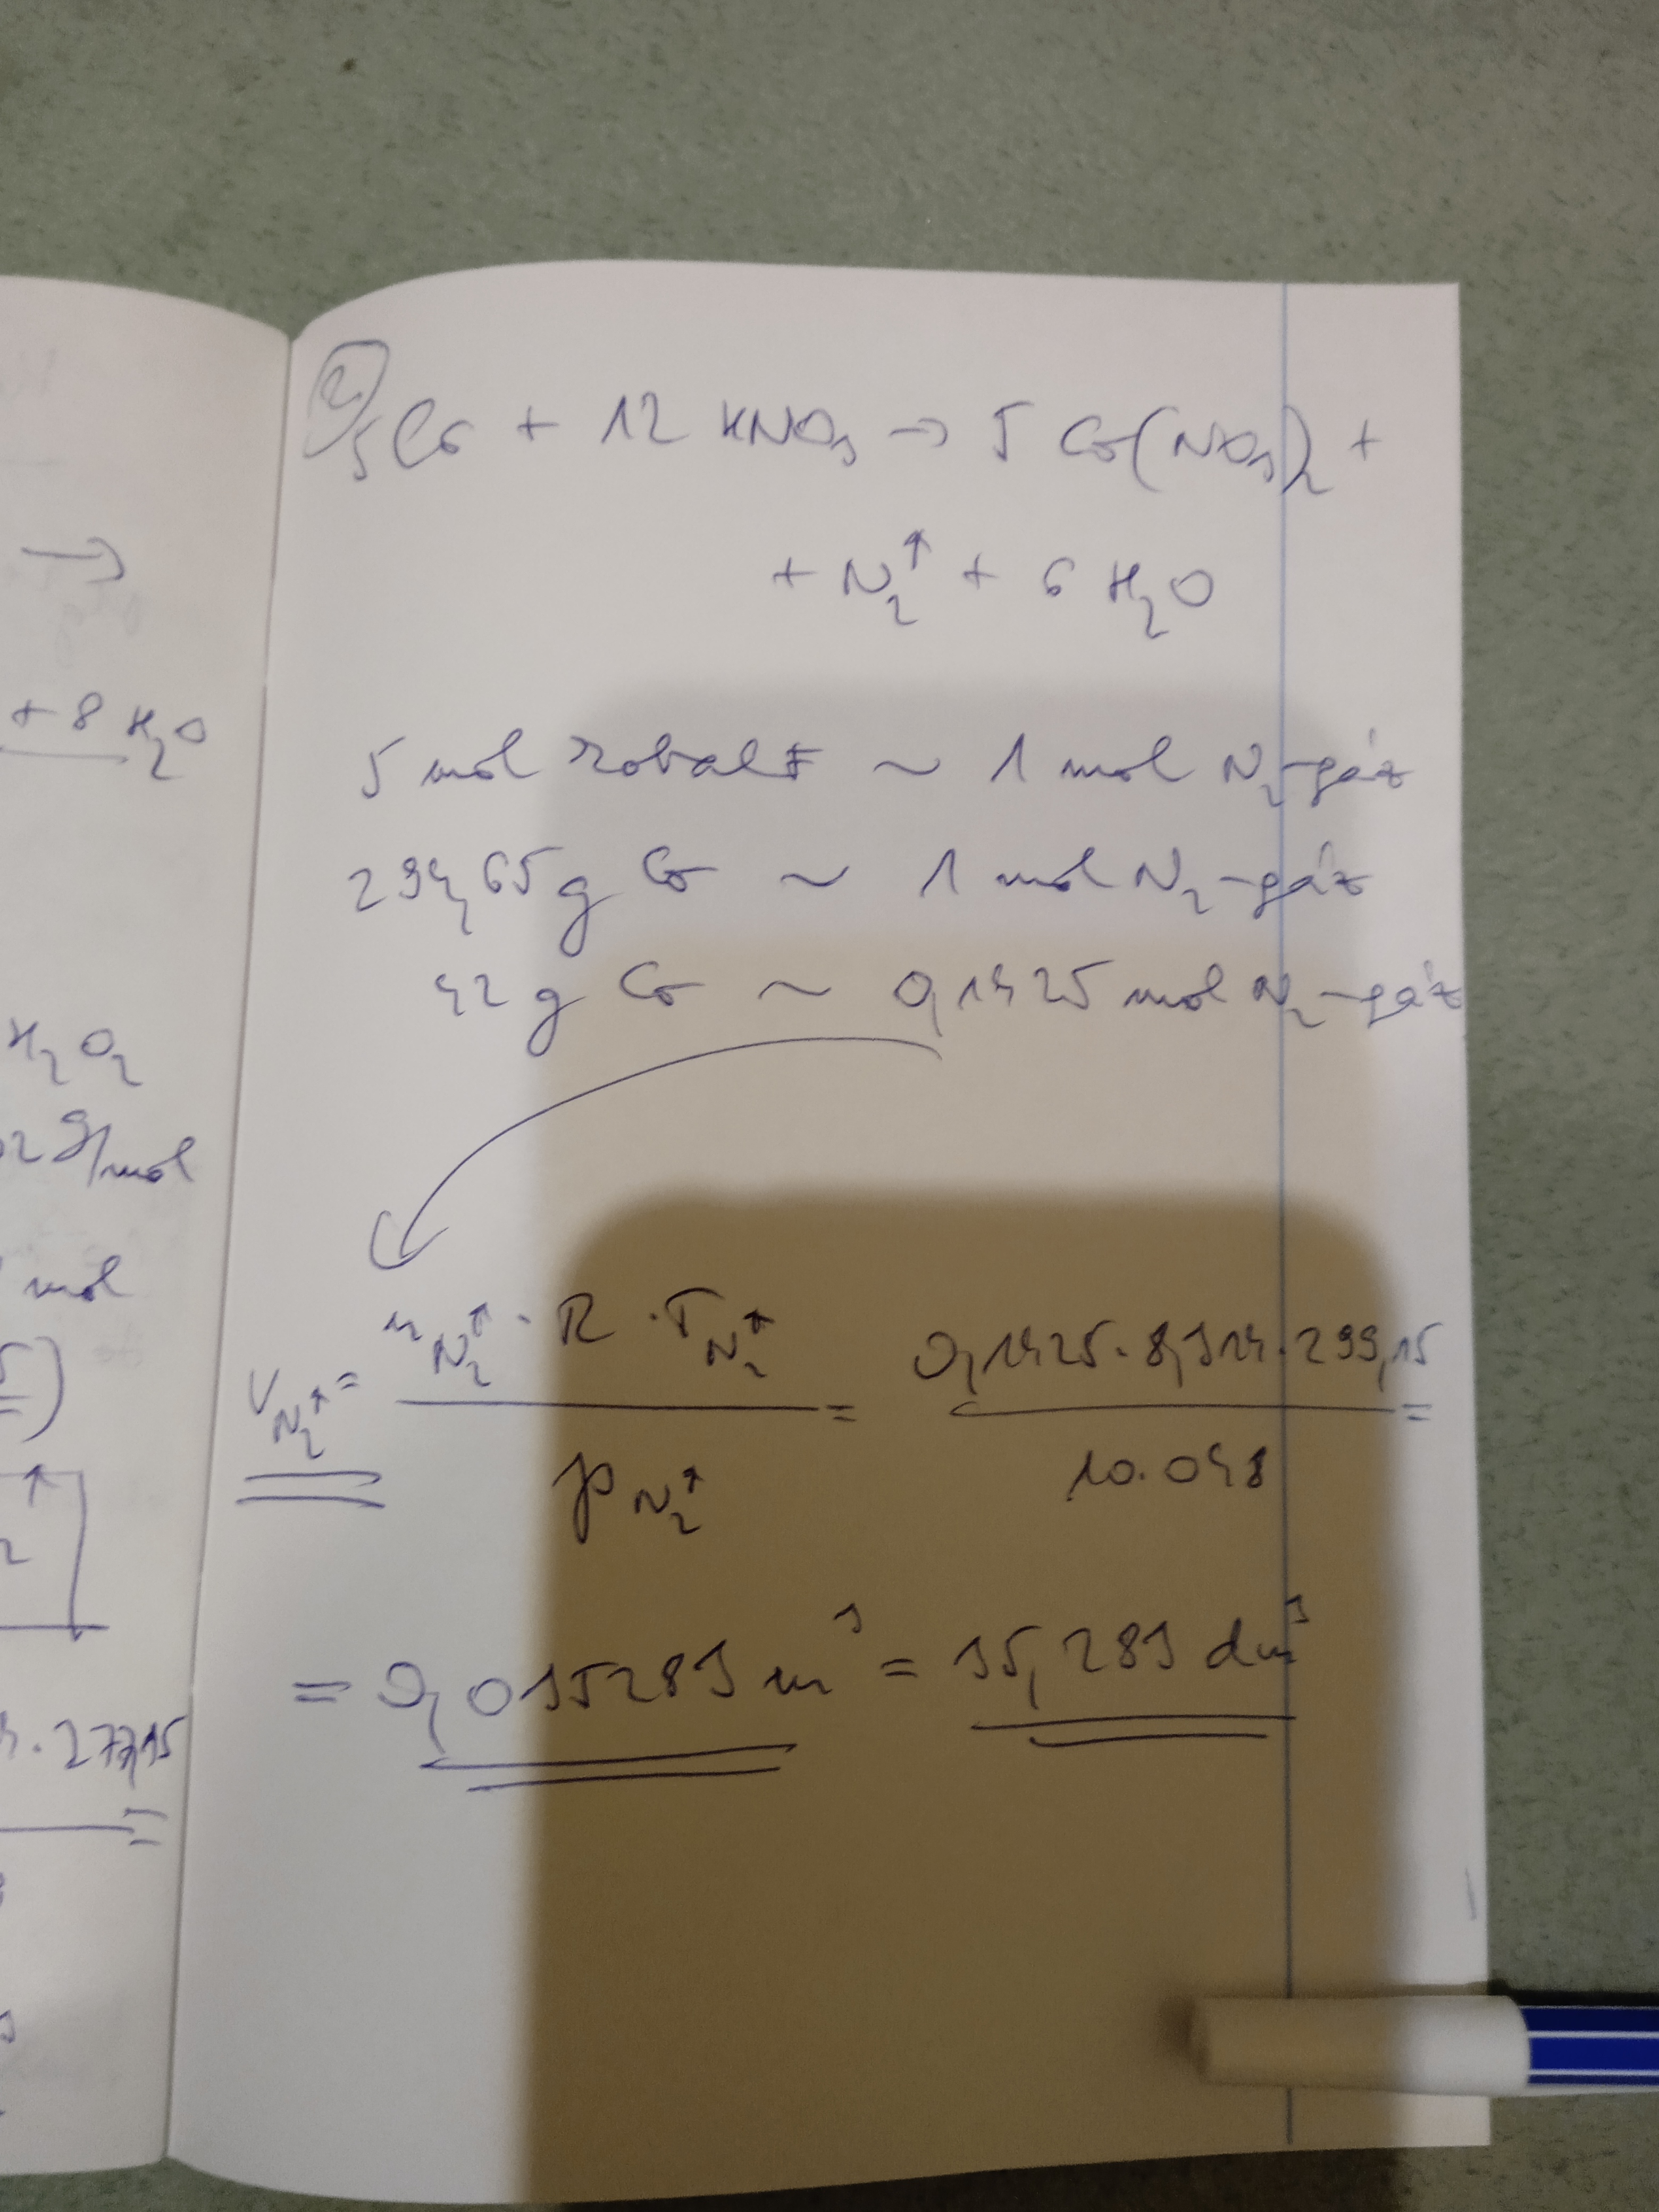 →
+ 8 H₂O
H₂O₂
g/mol
mol
. 277,15
=
2) 5 Co + 12 HNO₃ → 5 Co(NO₃)₂ +
+ N₂↑ + 6 H₂O
5 mol kobalt ~ 1 mol N₂-gáz
294,65 g Co ~ 1 mol N₂-gáz
42 g Co ~ 0,1425 mol N₂-gáz
V N₂↑ = n N₂↑ · R · T N₂↑ / p N₂↑ = 0,1425 · 8,314 · 299,15 / 10.048 =
= 0,035283 m³ = 35,283 dm³